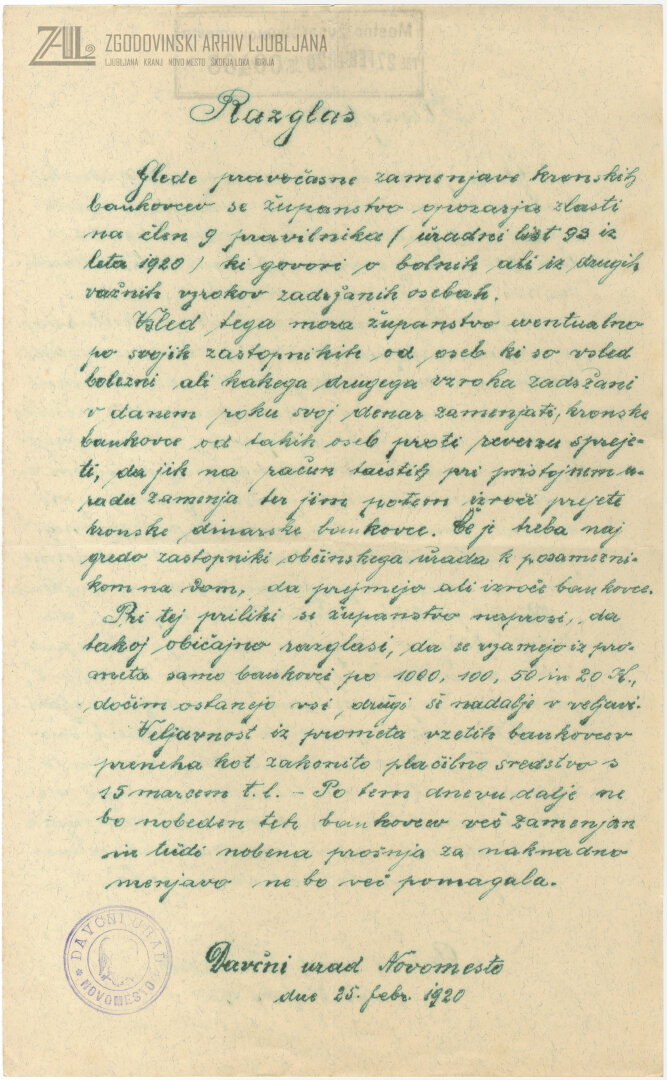 ZAL ZGODOVINSKI ARHIV LJUBLJANA
LJUBLJANA KRANJ NOVO MESTO ŠKOFJA LOKA IDRIJA
Razglas
Glede pravočasne zamenjave kronskih
bankovcev se županstvo opozarja zlasti
na člen 9 pravilnika / uradni list 93 iz
leta 1920 / ki govori o bolnih ali iz drugih
važnih vzrokov zadržanih osebah.
Vsled tega mora županstvo eventualno
po svojih zastopnikih od oseb ki so vsled
bolezni ali kakega drugega vzroka zadržani
v danem roku svoj denar zamenjati, kronske
bankovce od takih oseb proti reverzu spreje-
ti, da jih na račun taistih pri pristojnem u-
radu zamenja ter jim potem izroči prejete
kronske dinarske bankovce. Če je treba naj
gredo zastopniki občinskega urada k posamezni-
kom na dom, da prejmejo ali izroče bankovce.
Pri tej priliki se županstvo naprosi, da
takoj običajno razglasi, da se vzamejo iz pro-
meta samo bankovci po 1000, 100, 50 in 20 K.,
dočim ostanejo vsi, drugi še nadalje v veljavi.
Veljavnost iz prometa vzetih bankovcev
preneha kot zakonito plačilno sredstvo s
15 marcem t. l. - Po tem dnevu dalje ne
bo nobeden teh bankovcev več zamenjan
in tudi nobena prošnja za naknadno
menjavo ne bo več pomagala.
DAVČNI URAD
NOVOMESTO
Davčni urad Novomesto
dne 25. febr. 1920